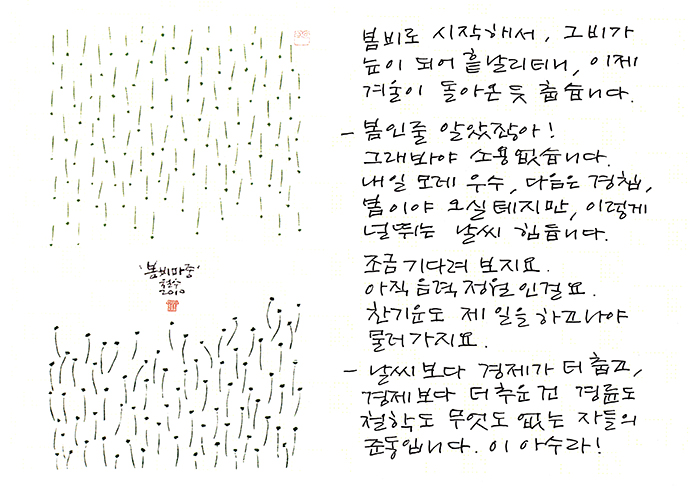 '봄비마중'
2010
봄비로 시작해서, 그비가
눈이 되어 흩날리더니, 이제
겨울이 돌아온 듯 춥습니다.
– 봄인줄 알았잖아!
그래봐야 소용없습니다.
내일 모레 우수, 다음은 경칩,
봄이야 오실테지만, 이렇게
널뛰는 날씨 힘듭니다.
조금 기다려 보지요.
아직 음력 정월인걸요.
찬기운도 제 일을 하고나야
물러가지요.
– 날씨보다 경제가 더 춥고,
경제보다 더 추운 건 경륜도
철학도 무엇도 없는 자들의
준동입니다. 이 아수라!